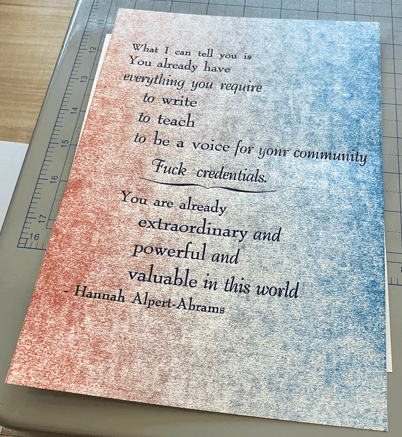 What I can tell you is
You already have
everything you require
to write
to teach
to be a voice for your community
Fuck credentials.
You are already
extraordinary and
powerful and
valuable in this world
- Hannah Alpert-Abrams
12
13
14
15
16
17
16